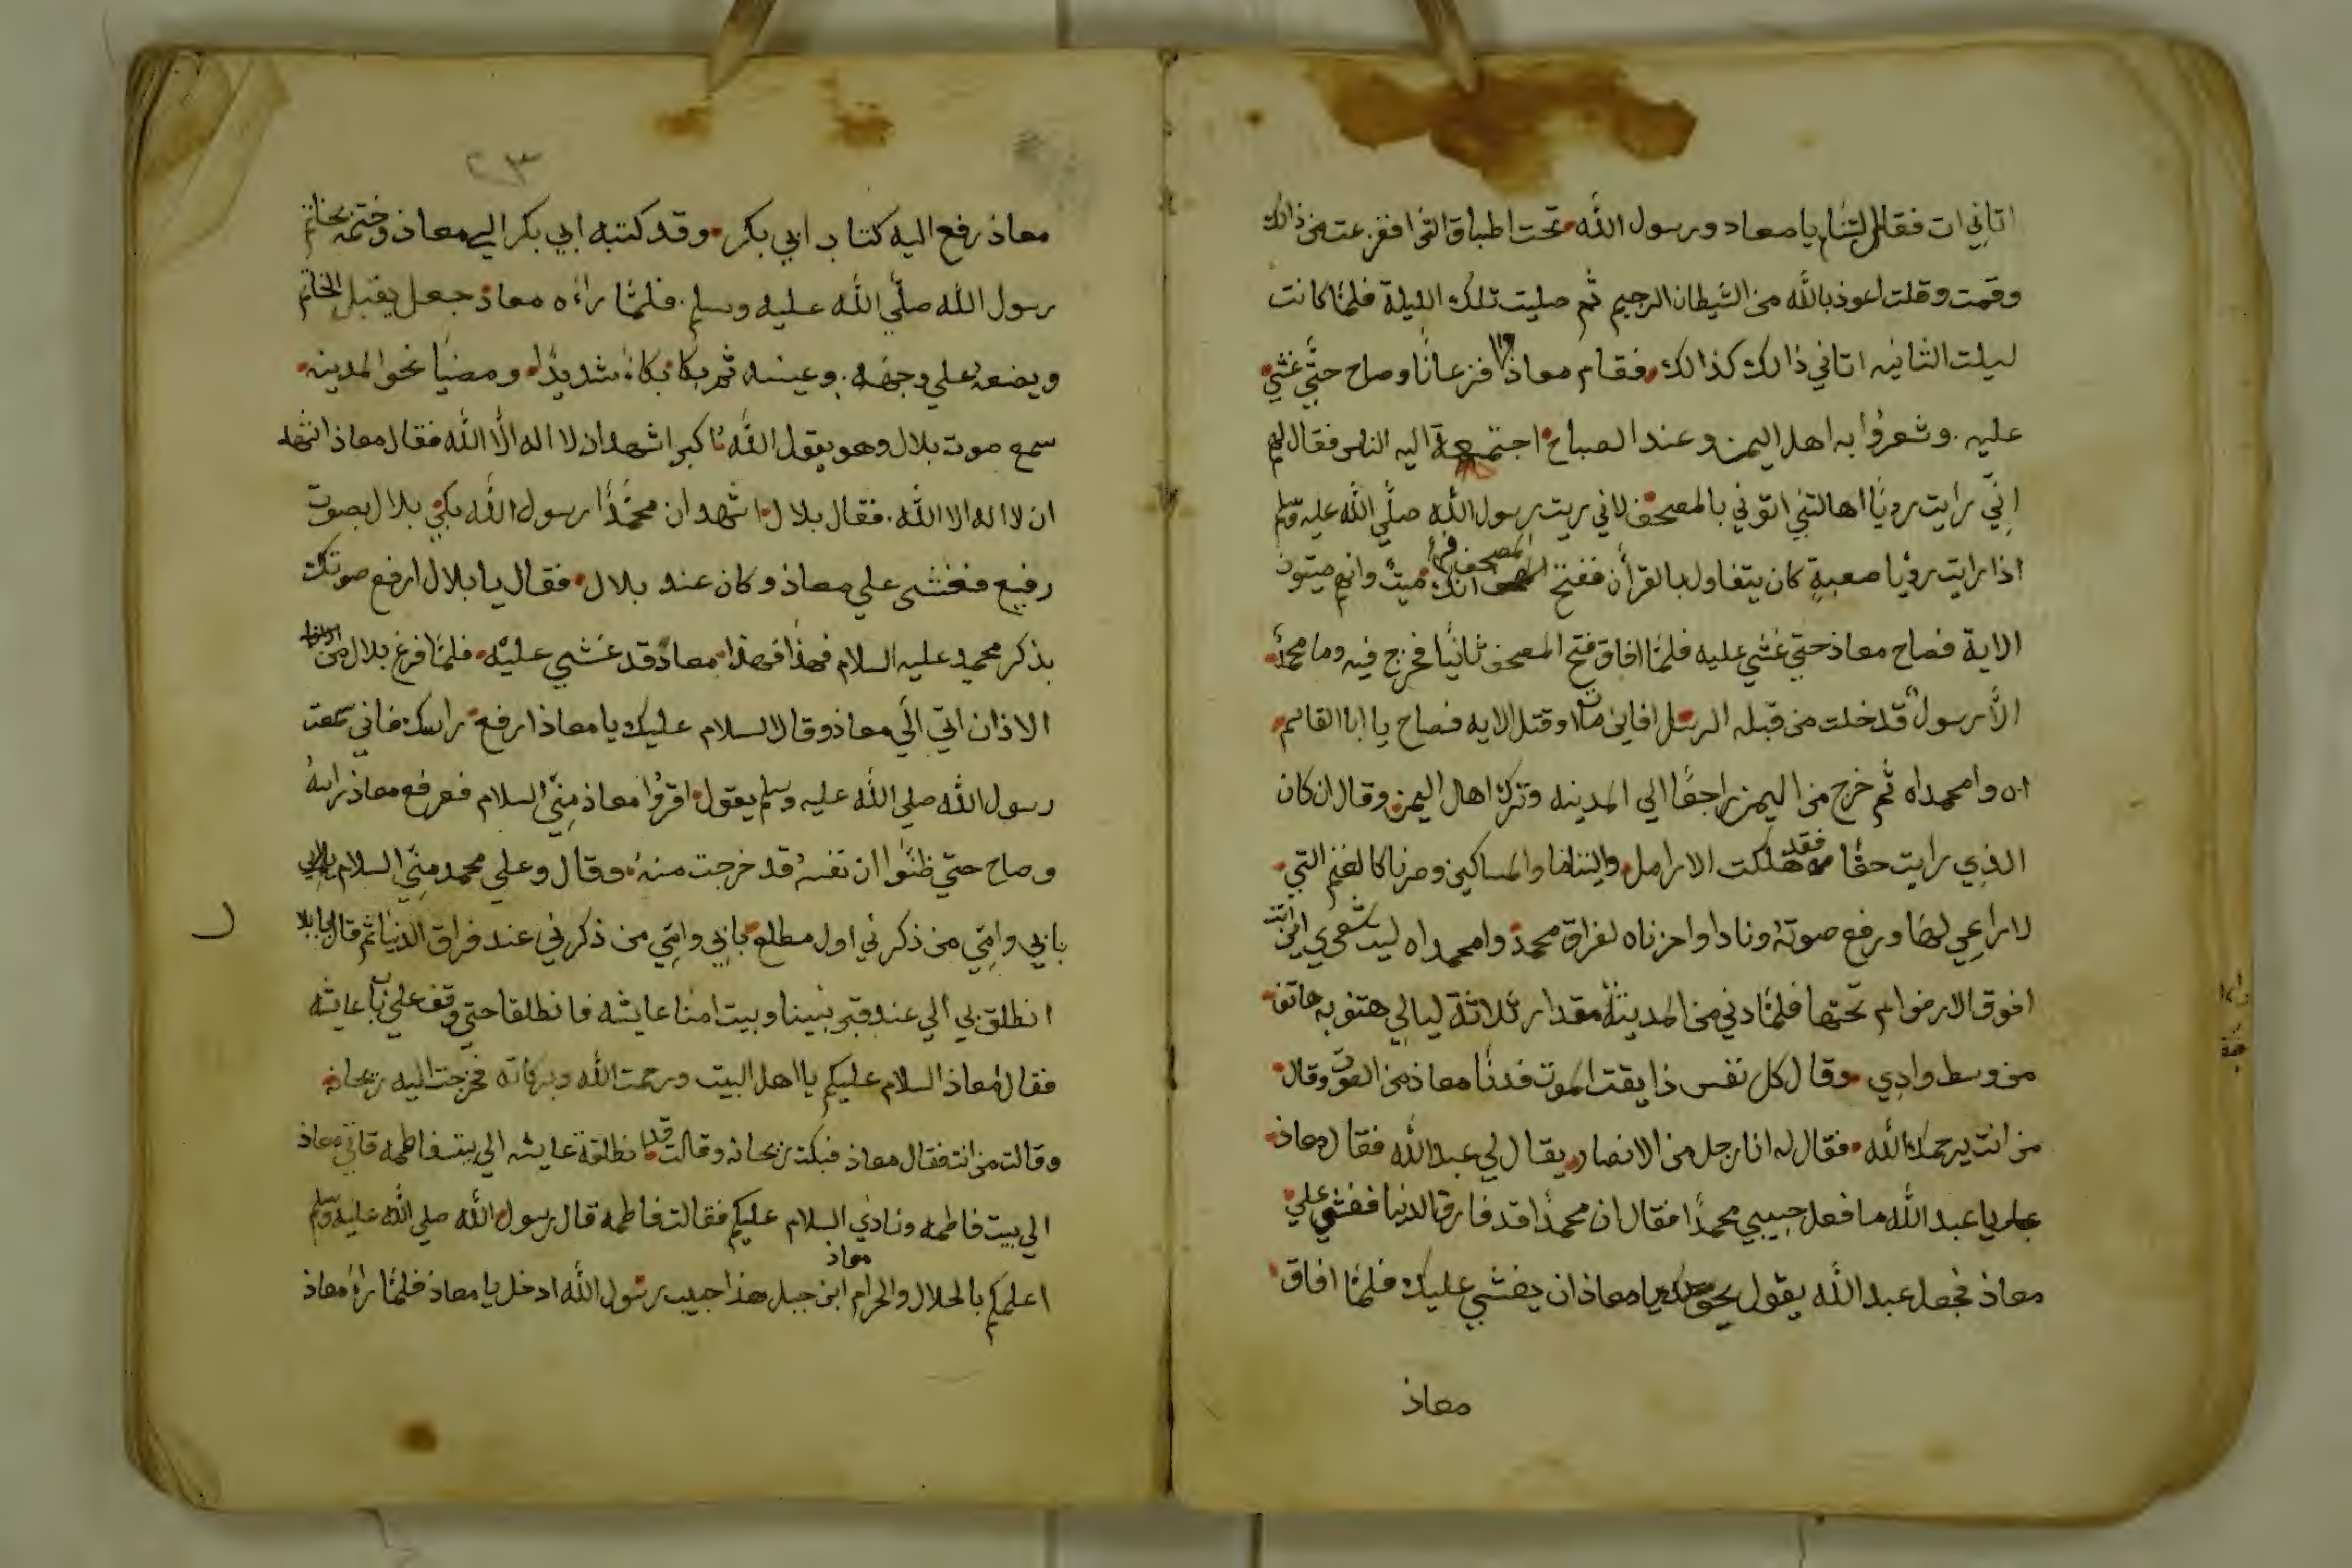 اتاني ات فقال لتنام يا معاد ورسول الله تحت اطباق الثرا ففزعت من ذالك
وقمت وقلت اعوذ بالله من الشيطان الرجيم ثم صليت تلك الليلة فلما كانت
ليلت الثانيه اتاني ذالك كذالك فقام معاذ فزعانا وصاح حتي غشي
عليه وشعروا به اهل اليمن وعند الصباح اجتمعة اليه الناس فقال لهم
اني رايت رويا اهالتني اتوني بالمصحف لاني ريت رسول الله صلي الله عليه وسلم
اذا رايت رؤيا صعبة كان يتفاول بالقران ففتح المصحف فراء انك ميت وانهم ميتون
الاية فصاح معاذ حتي غشي عليه فلما افاق فتح المصحف ثانيا فخرج فيه وما محمد
الا رسول قد خلت من قبله الرسل افاين مات او قتل الايه فصاح يا ابا القاسم
اه وا محمداه ثم خرج من اليمن راجعا الي المدينه وترك اهل اليمن وقال ان كان
الذي رايت حقا فقد هلكت الارامل واليتاما والمساكين وصرنا كالغنم التي
لا راعي لها ورفع صوته ونادا واحزناه لفراق محمد وامحمداه ليت شعري اين انت
افوق الارض ام تحتها فلما دني من المدينة مقدار ثلاثة ليالي هتف به هاتف
من وسط وادي وقال كل نفس ذايقت الموت فدنا معاذ من الصوت وقال
من انت يرحمك الله فقال له انا رجل من الانصار يقال لي عبد الله فقال معاذ
يا عبد الله ما فعل حبيبي محمدا فقال ان محمدا قد فارق الدنيا فغشي علي
معاذ فجعل عبد الله يقول يحق لك يا معاذ ان يغشي عليك فلما افاق
معاذ
٢٣
معاذ رفع اليه كتاب ابي بكر وقد كتبه ابي بكر الي معاذ وختمه بخاتم
رسول الله صلي الله عليه وسلم فلما راءه معاذ جعل يقبل الخاتم
ويضعه علي وجهه وعينه ثم بكا بكاء شديدا ومضيا نحو المدينه
سمع صوت بلال وهو يقول الله اكبر اشهد ان لا اله الا الله فقال معاذ اشهد
ان لا اله الا الله فقال بلال اشهد ان محمدا رسول الله بكي بلال بصوت
رفيع فغشي علي معاذ وكان عند بلال فقال يا بلال ارفع صوتك
بذكر محمد عليه السلام فهذا معاذ قد غشي عليه فلما فرغ بلال من
الاذان اتي الي معاذ وقال السلام عليك يا معاذ ارفع راسك فاني سمعت
رسول الله صلي الله عليه وسلم يقول اقروا معاذ مني السلام فرفع معاذ راسه
وصاح حتي ظنوا ان نفسه قد خرجت منه وقال وعلي محمد مني السلام
بابي وامي من ذكرني اول مطلع بابي وامي من ذكرني عند فراق الدنيا ثم قال يا بلال
انطلق بي الي عند قبر نبينا وبيت امنا عايشه فانطلقا حتي وقف علي باب عايشه
فقال معاذ السلام عليكم يا اهل البيت ورحمت الله وبركاته فخرجت اليه ريحانه
وقالت من انت فقال معاذ فبكت ريحانه وقالت قد انطلقة عايشه الي بيت فاطمه فاتي معاذ
الي بيت فاطمه ونادي السلام عليكم فقالت فاطمه قال رسول الله صلي الله عليه وسلم
اعلمكم بالحلال والحرام معاذ ابن جبل هذا حبيب رسول الله ادخل يا معاذ فلما راه معاذ